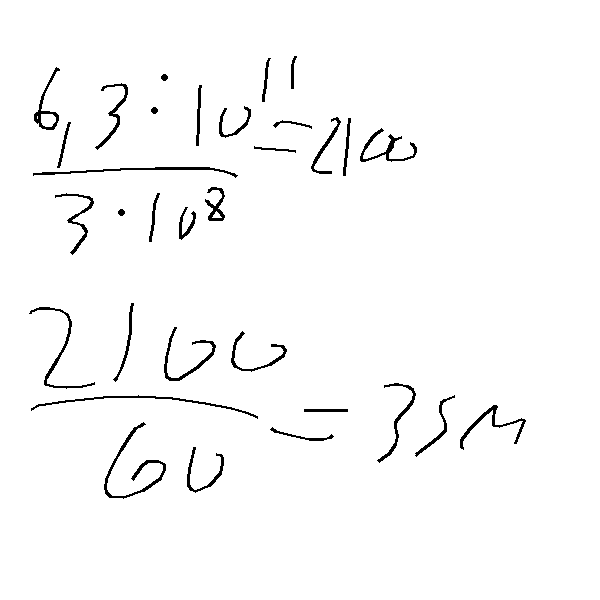 6,3 · 10^11 / 3 · 10^8 = 2100
2100 / 60 = 35м